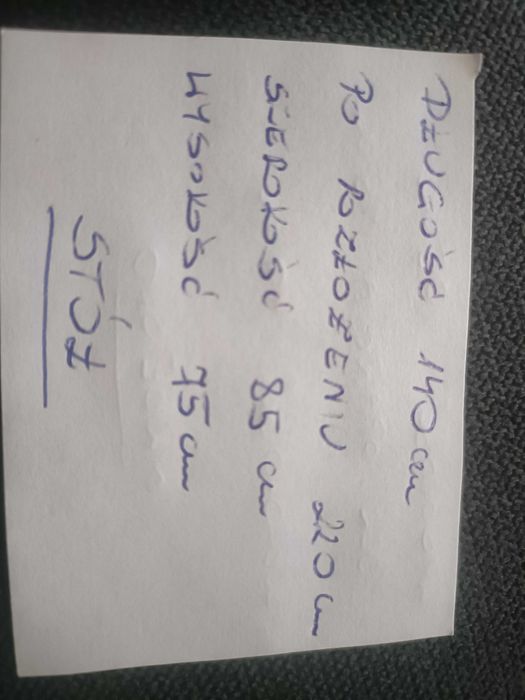 DŁUGOŚĆ 140 cm
PO ROZŁOŻENIU 220 cm
SZEROKOŚĆ 85 cm
WYSOKOŚĆ 75 cm
STÓŁ